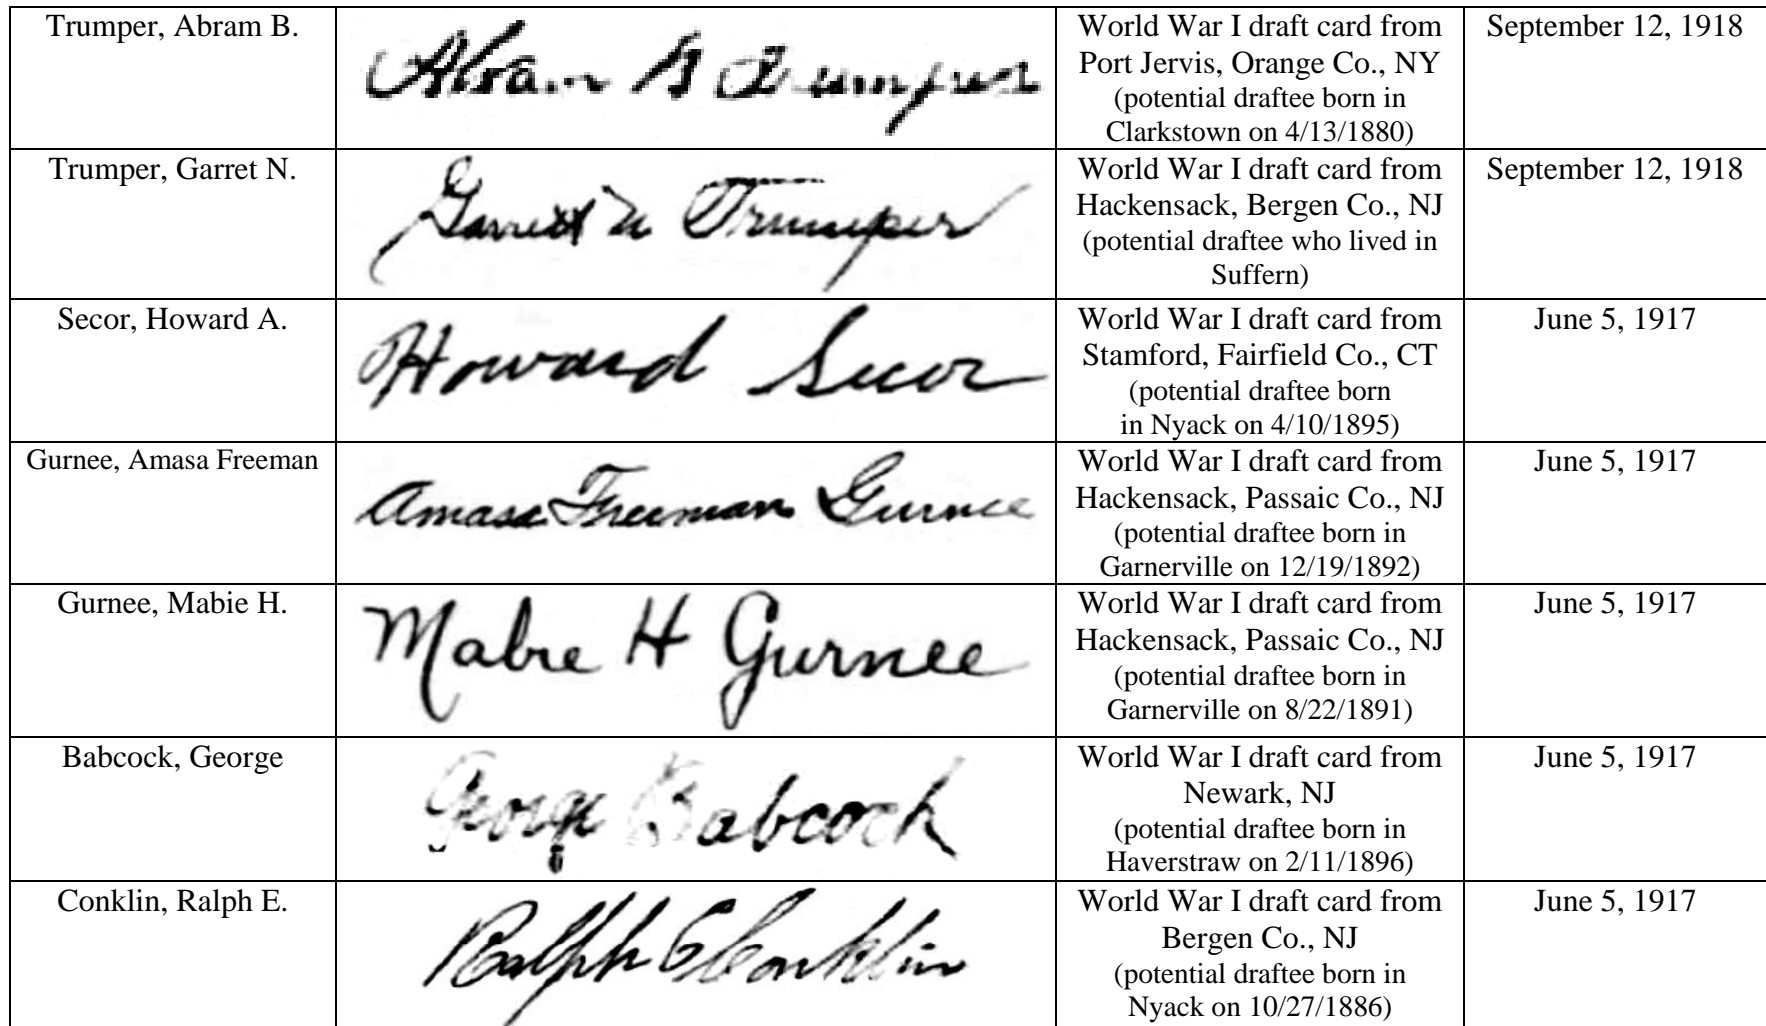 Trumper, Abram B.
Abram B Trumper
World War I draft card from
Port Jervis, Orange Co., NY
(potential draftee born in
Clarkstown on 4/13/1880)
September 12, 1918
Trumper, Garret N.
Garret N Trumper
World War I draft card from
Hackensack, Bergen Co., NJ
(potential draftee who lived in
Suffern)
September 12, 1918
Secor, Howard A.
Howard Secor
World War I draft card from
Stamford, Fairfield Co., CT
(potential draftee born
in Nyack on 4/10/1895)
June 5, 1917
Gurnee, Amasa Freeman
Amasa Freeman Gurnee
World War I draft card from
Hackensack, Passaic Co., NJ
(potential draftee born in
Garnerville on 12/19/1892)
June 5, 1917
Gurnee, Mabie H.
Mabie H Gurnee
World War I draft card from
Hackensack, Passaic Co., NJ
(potential draftee born in
Garnerville on 8/22/1891)
June 5, 1917
Babcock, George
George Babcock
World War I draft card from
Newark, NJ
(potential draftee born in
Haverstraw on 2/11/1896)
June 5, 1917
Conklin, Ralph E.
Ralph E Conklin
World War I draft card from
Bergen Co., NJ
(potential draftee born in
Nyack on 10/27/1886)
June 5, 1917